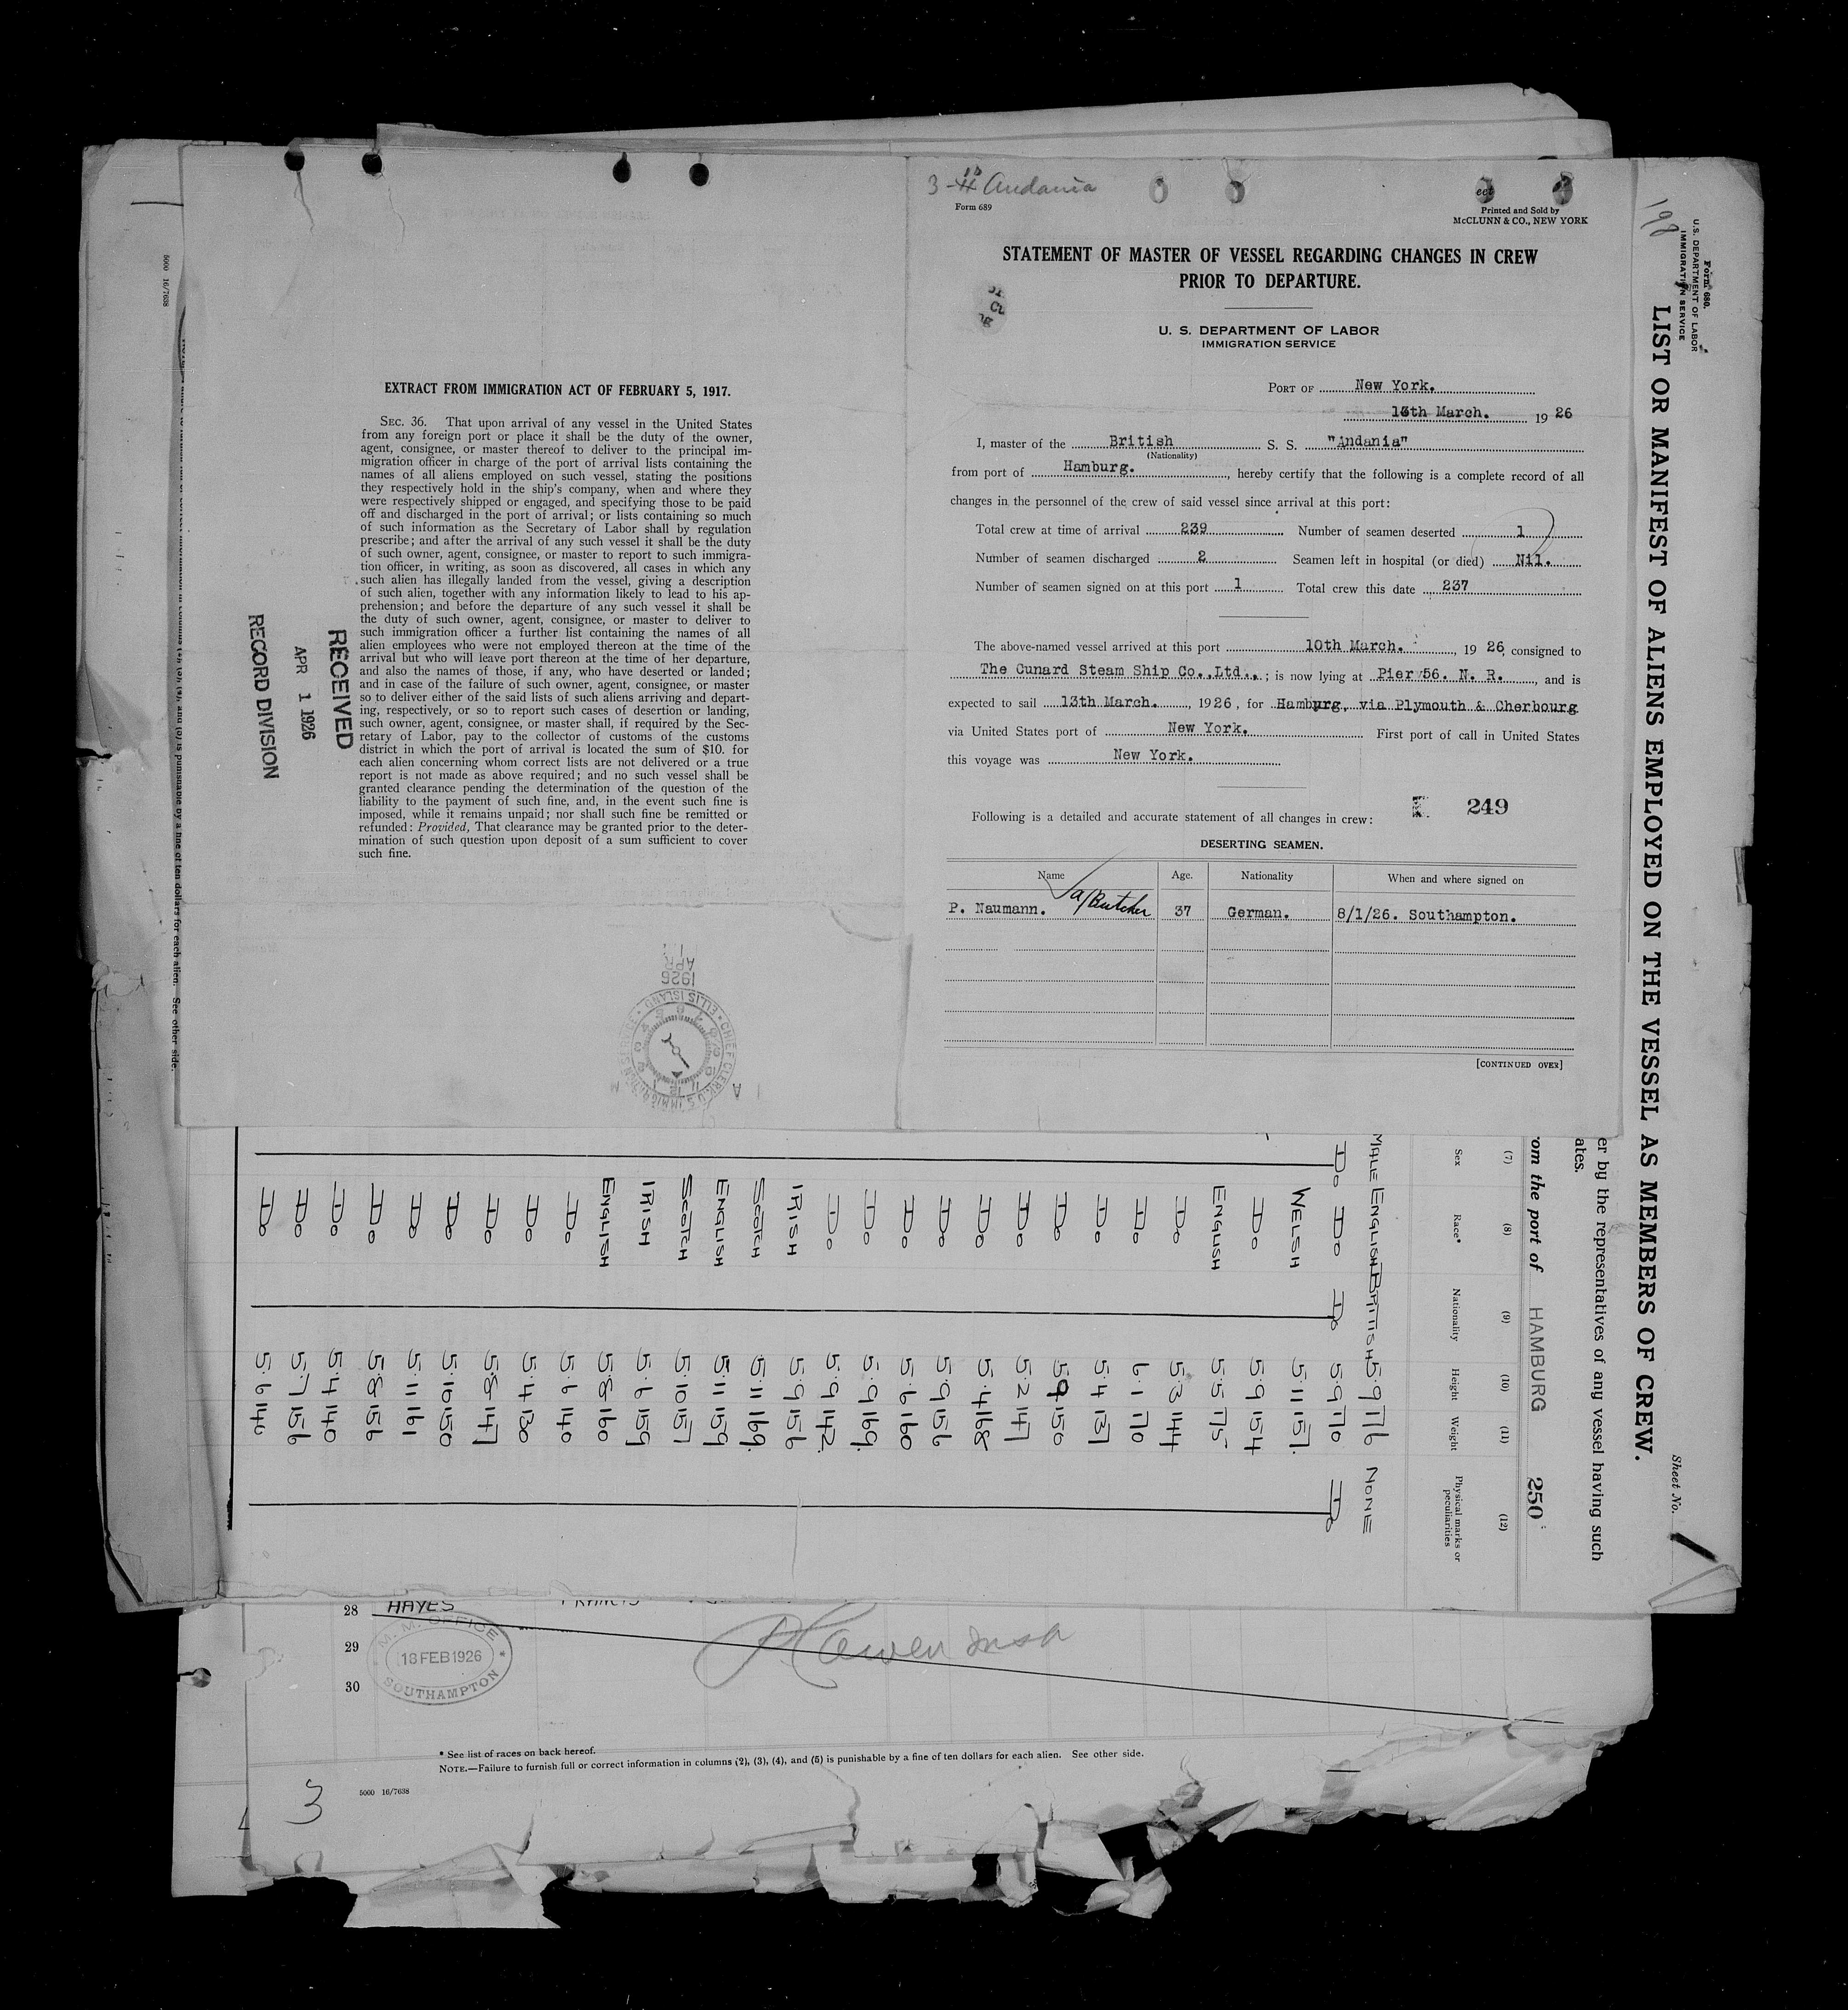 EXTRACT FROM IMMIGRATION ACT OF FEBRUARY 5, 1917.
SEC. 36. That upon arrival of any vessel in the United States
from any foreign port or place it shall be the duty of the owner,
agent, consignee, or master thereof to deliver to the principal im-
migration officer in charge of the port of arrival lists containing the
names of all aliens employed on such vessel, stating the positions
they respectively hold in the ship's company, when and where they
were respectively shipped or engaged, and specifying those to be paid
off and discharged in the port of arrival; or lists containing so much
of such information as the Secretary of Labor shall by regulation
prescribe; and after the arrival of any such vessel it shall be the duty
of such owner, agent, consignee, or master to report to such immigra-
tion officer, in writing, as soon as discovered, all cases in which any
such alien has illegally landed from the vessel, giving a description
of such alien, together with any information likely to lead to his ap-
prehension; and before the departure of any such vessel it shall be
the duty of such owner, agent, consignee, or master to deliver to
such immigration officer a further list containing the names of all
alien employees who were not employed thereon at the time of the
arrival but who will leave port thereon at the time of her departure,
and also the names of those, if any, who have deserted or landed;
and in case of the failure of such owner, agent, consignee, or master
so to deliver either of the said lists of such aliens arriving and depart-
ing, respectively, or so to report such cases of desertion or landing,
such owner, agent, consignee, or master shall, if required by the Sec-
retary of Labor, pay to the collector of customs of the customs
district in which the port of arrival is located the sum of $10. for
each alien concerning whom correct lists are not delivered or a true
report is not made as above required; and no such vessel shall be
granted clearance pending the determination of the question of the
liability to the payment of such fine, and, in the event such fine is
imposed, while it remains unpaid; nor shall such fine be remitted or
refunded: Provided, That clearance may be granted prior to the deter-
mination of such question upon deposit of a sum sufficient to cover
such fine.
RECEIVED
APR 1 1926
RECORD DIVISION
APR
1926
CHIEF CLERK, U.S. IMMIGRATION SERVICE * ELLIS ISLAND *
5000 16/7638
is punishable by a fine of ten dollars for each alien. See other side.
3 - Andania
Form 689
Printed and Sold by
McCLUNN & CO., NEW YORK
STATEMENT OF MASTER OF VESSEL REGARDING CHANGES IN CREW
PRIOR TO DEPARTURE.
U. S. DEPARTMENT OF LABOR
IMMIGRATION SERVICE
PORT OF New York.
13th March. 19 26
I, master of the British S. S. "Andania"
(Nationality)
from port of Hamburg. , hereby certify that the following is a complete record of all
changes in the personnel of the crew of said vessel since arrival at this port:
Total crew at time of arrival 239 Number of seamen deserted 1
Number of seamen discharged 2 Seamen left in hospital (or died) Nil.
Number of seamen signed on at this port 1 Total crew this date 237
The above-named vessel arrived at this port 10th March. , 19 26, consigned to
The Cunard Steam Ship Co.,Ltd., ; is now lying at Pier 56. N. R. , and is
expected to sail 13th March. , 1926, for Hamburg, via Plymouth & Cherbourg
via United States port of New York. First port of call in United States
this voyage was New York.
249
Following is a detailed and accurate statement of all changes in crew:
DESERTING SEAMEN.
Name Age. Nationality When and where signed on
P. Naumann. a/Butcher 37 German. 8/1/26. Southampton.
[CONTINUED OVER]
198
Form 680.
U.S. DEPARTMENT OF LABOR
IMMIGRATION SERVICE
LIST OR MANIFEST OF ALIENS EMPLOYED ON THE VESSEL AS MEMBERS OF CREW.
Sheet No.
er by the representatives of any vessel having such
ates.
om the port of HAMBURG 250
(7) (8) (9) (10) (11) (12)
Sex Race* Nationality Height Weight Physical marks or peculiarities
MALE ENGLISH BRITISH 5·9 176 NONE
Do Do Do 5·9 170 Do
WELSH 5·11 157
Do 5·9 154
ENGLISH 5·5 175
Do 5·3 144
Do 6·1 170
Do 5·4 137
Do 5·9 150
Do 5·2 147
Do 5·4 168
Do 5·9 156
Do 5·6 160
Do 5·9 169
Do 5·9 142
IRISH 5·9 156
SCOTCH 5·11 169
ENGLISH 5·11 159
SCOTCH 5·10 157
IRISH 5·6 159
ENGLISH 5·8 160
Do 5·6 140
Do 5·4 130
Do 5·8 147
Do 5·10 150
Do 5·11 161
Do 5·8 156
Do 5·4 140
Do 5·7 156
Do 5·6 140
28 HAYES FRANCIS
29
30
M. M. OFFICE
18 FEB 1926
SOUTHAMPTON
* See list of races on back hereof.
NOTE.—Failure to furnish full or correct information in columns (2), (3), (4), and (5) is punishable by a fine of ten dollars for each alien. See other side.
5000 16/7638
3